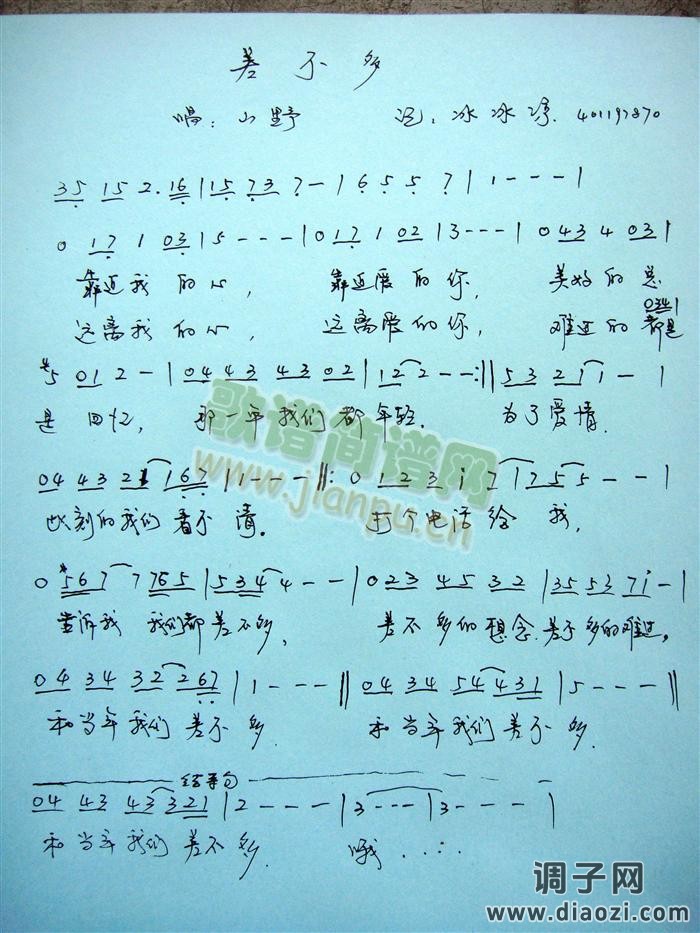 差不多
唱：山野 记：冰冰 401197870
35 15 2.16|15 73 7-|6 5 5 7|1---|
0 17 1 03|5---|017 1 02|3---|043 4 03|
靠近我的心，靠近爱的你，美好的总
0341
远离我的心，远离爱的你，难过的都是
#5 01 2-|04 43 43 02|12 2--:||53 21 1-|
是回忆，那一年我们都年轻. 为了爱情.
04 43 21 167|1---||:0 123 i 7|1755--|
此刻的我们看不清。打个电话给我，
0 #567 7765|5344--|023 45 32|35 53 7i-|
告诉我 我们都差不多，差不多的想念.差不多的难过。
04 34 32 267|1---||04 34 54 431|5---||
和当年我们差不多. 和当年我们差不多.
结束句
04 43 43 321|2---|3---|3---|
和当年我们差不多. 哦.....
歌谱简谱网
www.jianpu.cn
调子网
www.diaozi.com